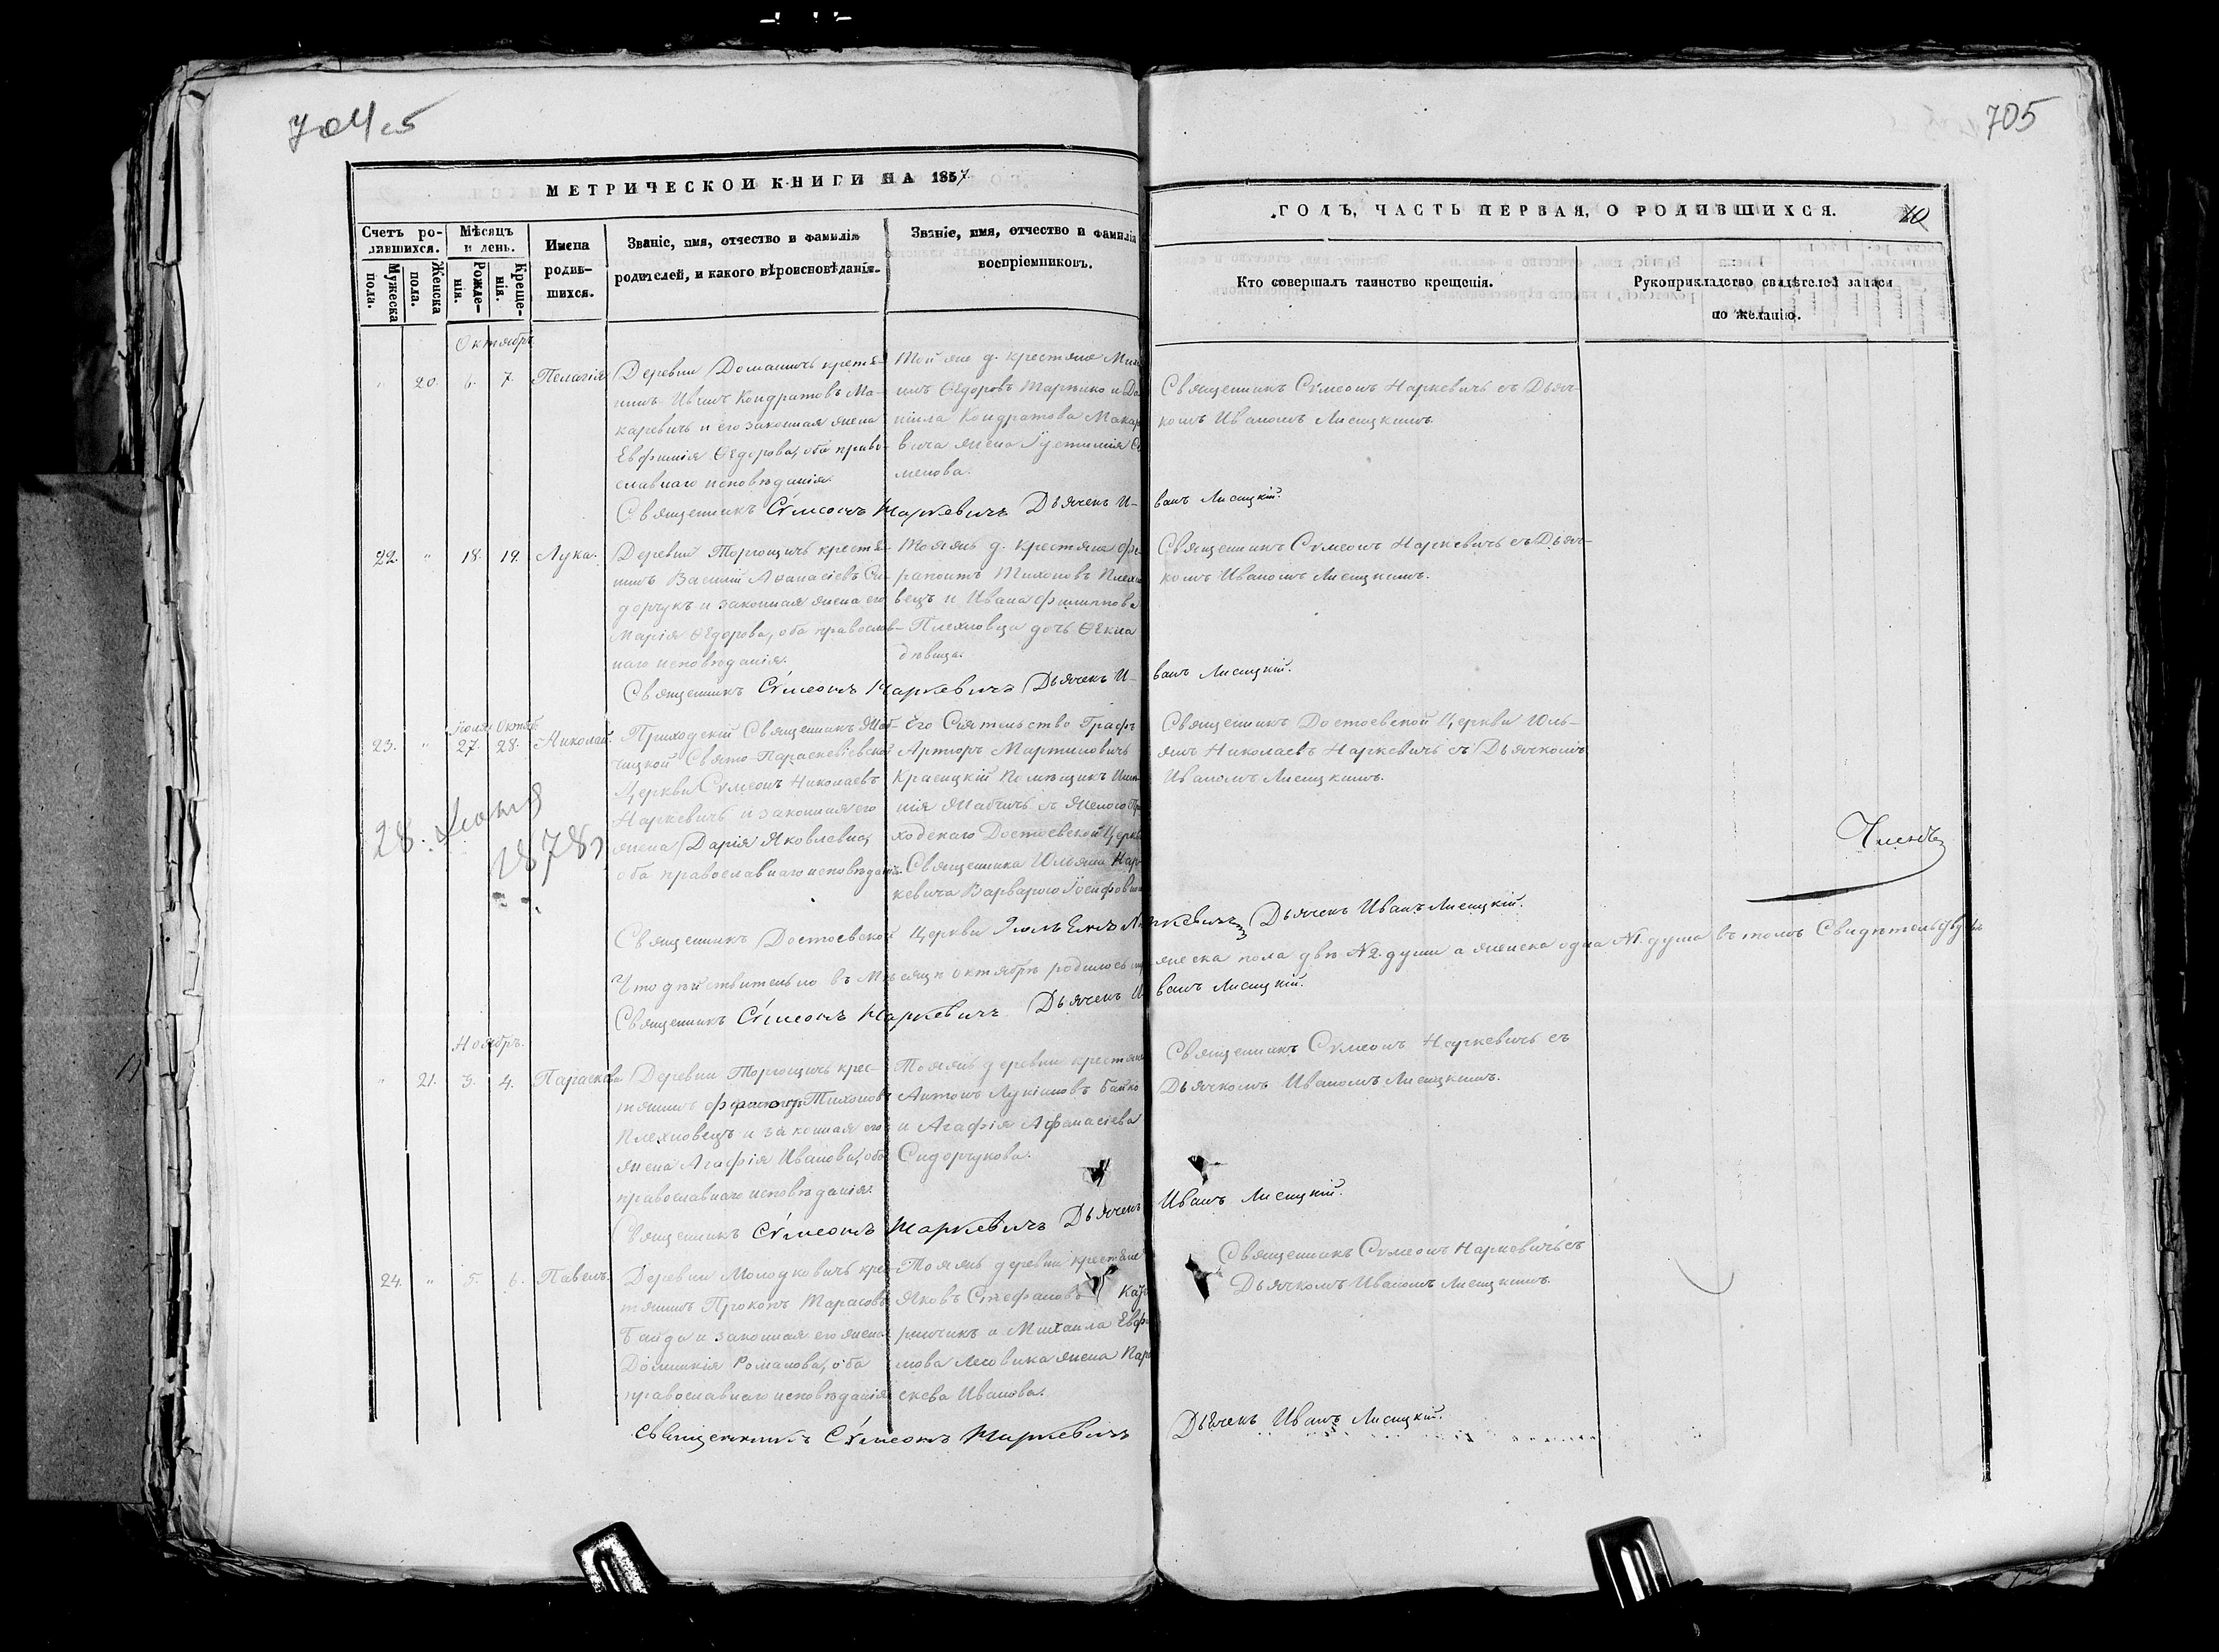 704 об
705
МЕТРИЧЕСКОЙ КНИГИ НА 1857
ГОДЪ, ЧАСТЬ ПЕРВАЯ, О РОДИВШИХСЯ.
10
Счетъ родившихся.
Мужеска пола.
Женска пола.
Мѣсяцъ и день.
Рожденія.
Крещенія.
Имена родившихся.
Званіе, имя, отчество и фамилія
родителей, и какого вѣроисповѣданія.
Званіе, имя, отчество и фамилія
воспріемниковъ.
Кто совершалъ таинство крещенія.
Рукоприкладство свидѣтелей записи
по желанію.
Октябрь
" 20. 6. 7. Пелагія
Деревни Домашичь крестья-
нинъ Иванъ Кондратовъ Ма-
каревичь и его законная жена
Евфимія Ѳедорова, оба право-
славнаго исповѣданія.
Той же д. крестяне Миха
илъ Ѳедоровъ и Да
ніила Кондратова Макар
вича жена Іустинія Се
менова.
Священникъ Сѵмеонъ Наркевичь съ Дьяч-
комъ Иваномъ Лисицкимъ.
Священникъ Сѵмеонъ Наркевичъ Дьячекъ И-
ванъ Лисицкій.
22. " 18. 19. Лука.
Деревни Торгощичь крестья-
нинъ Василій Аѳанасіевъ Си-
дорчукъ и законная жена его
Марія Ѳедорова, оба православ-
наго исповѣданія.
Тояжъ д. крестяне Фе-
рапонтъ Тихоновъ Плехно
вецъ и Ивана Филиппова
Плехновца дочь Ѳекла
дѣвица.
Священникъ Сѵмеонъ Наркевичь съ Дьяч-
комъ Иваномъ Лисицкимъ.
Священникъ Сѵмеонъ Наркевичъ Дьячекъ И-
ванъ Лисицкій.
Іюля Октяб.
23. " 27. 28. Николай.
Приходскій Священникъ Жаб-
чицкой Свято-Параскевіевской
Церкви Сѵмеонъ Николаевъ
Наркевичь и законная его
жена Дарія Яковлевна,
оба православнаго исповѣданія.
Его Сіятельство Графъ
Артюръ Мартиновичь
Красицкій Помѣщикъ Имѣ-
нія Жабчичь съ женою При
ходскаго Достоевской Церкви
Священника Юльяна Нар-
кевича Варварою Іосифовною
Священникъ Достоевской Церкви Юль-
янъ Николаевъ Наркевичь съ Дьячкомъ
Иваномъ Лисицкимъ.
28. Іюня
1878 г
Членъ
Священникъ Достоевской Церкви Іюльянъ Наркевичъ Дьячекъ Иванъ Лисицкій.
Что дѣйствительно въ мѣсяцѣ октябрѣ родилось мужеска пола двѣ №2. души а женска одна №1. душа въ томъ Свидѣтельствуемъ
Священникъ Сѵмеонъ Наркевичъ Дьячекъ И-
ванъ Лисицкій.
Ноябрь.
" 21. 3. 4. Параскева
Деревни Торгощичь крес-
тянинъ Тихоновъ
Плехновецъ и законная его
жена Агафія Иванова, оба
православнаго исповѣданія.
Тояжъ деревни крестяне
Антонъ Лукіановъ Байко
и Агафія Афанасіева
Сидорчукова.
Священникъ Сѵмеонъ Наркевичь съ
Дьячкомъ Иваномъ Лисицкимъ.
Священникъ Сѵмеонъ Наркевичъ Дьячекъ
Иванъ Лисицкій.
24. " 5. 6. Павелъ.
Деревни Молодковичь крес-
тянинъ Прокопъ Тарасовъ
Байда и законная его жена
Доминикія Романова, оба
православнаго исповѣданія
Тояжъ деревни крестяне
Яковъ Стефановъ
и Михаила Евфи
мова Лесовика жена Пара
скева Иванова.
Священникъ Сѵмеонъ Наркевичь съ
Дьячкомъ Иваномъ Лисицкимъ.
Священникъ Сѵмеонъ Наркевичъ
Дьячекъ Иванъ Лисицкій.